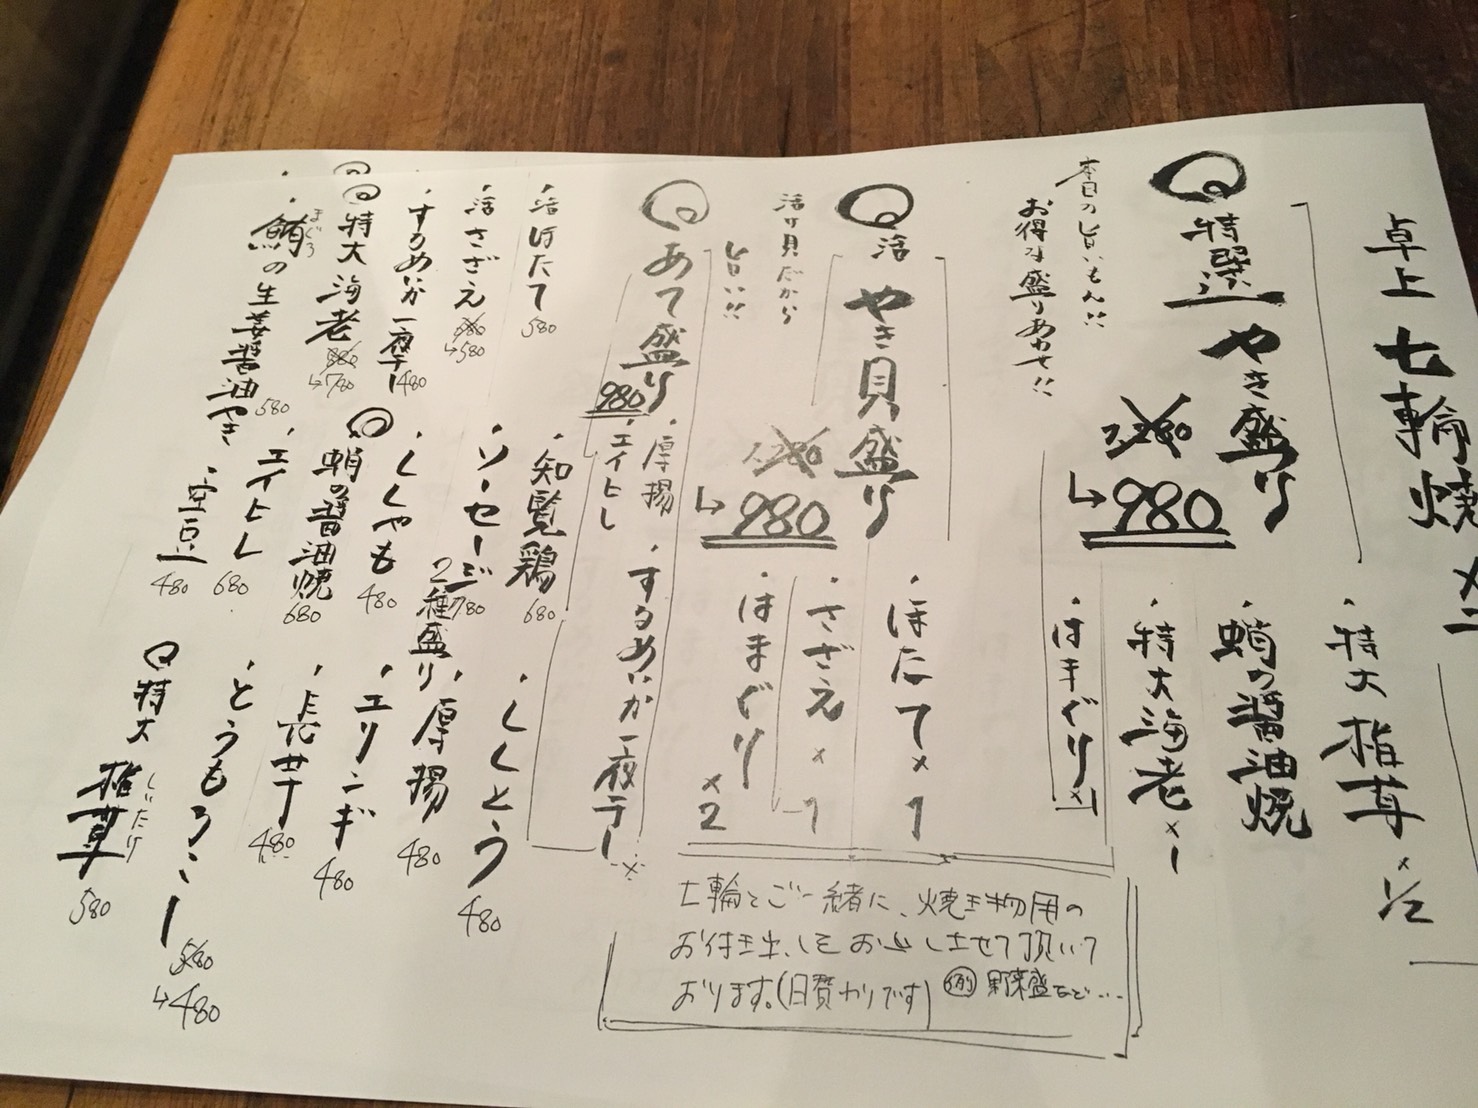 卓上 七輪焼メニ
特選 やき盛り
本日の旨いもん!!
お得な盛りあわせ!!
→980
・特大 椎茸 ×1/2
蛸の醤油焼
・特大海老×1
・はまぐり×1
活 やき貝盛り
活け貝だから
旨い!!
→980
・ほたて×1
・さざえ×1
・はまぐり×2
あて盛り
980
・厚揚
・エイヒレ
・するめいか一夜干し
七輪とご一緒に、焼き物用の
お付き出しをお出しさせて頂いて
おります。(日替わりです) 例 野菜盛など…
・活ほたて 580
・活さざえ 680→580
・するめいか一夜干し 480
特大海老 880→780
・鮪の生姜醤油やき 580
まぐろ
・知覧鶏 680
・ソーセージ2種盛り 780
・ししゃも 480
蛸の醤油焼 680
・エイヒレ 680
・空豆 480
・ししとう 480
・厚揚 480
・エリンギ 480
・長芋 480
・とうもろこし 580→480
特大 椎茸 580
しいたけ